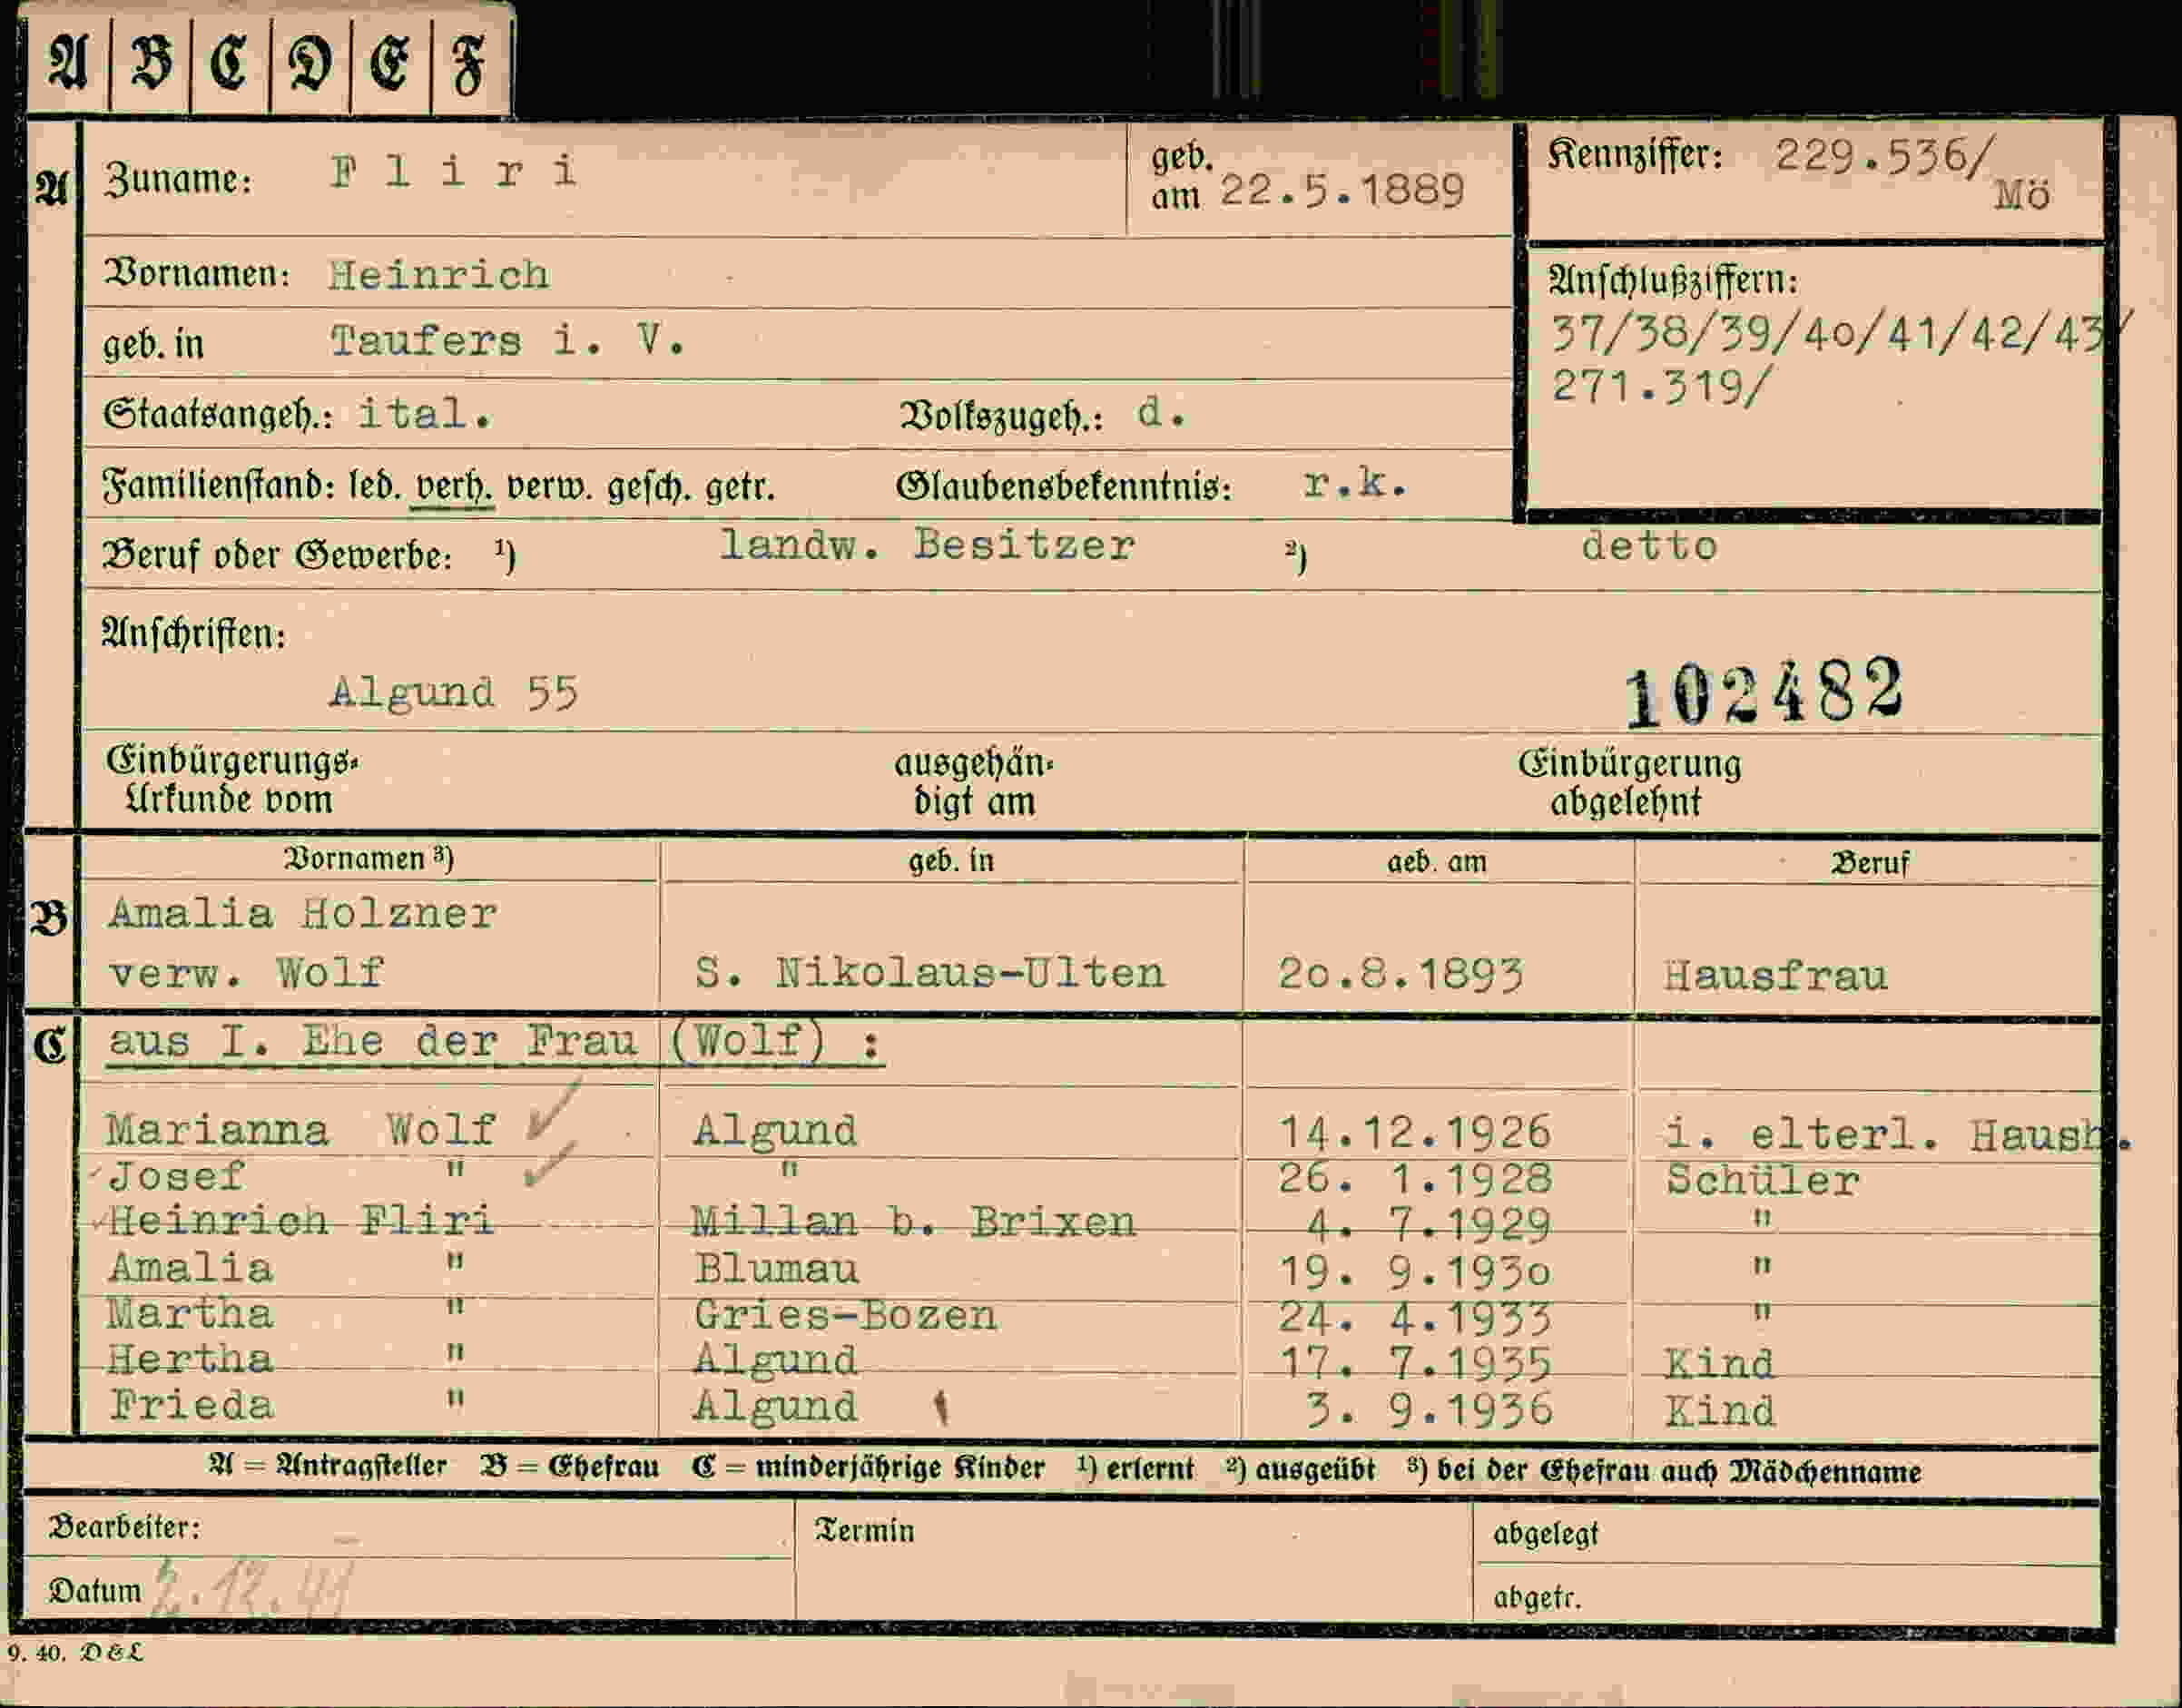 A B C D E F
A Zuname: F l i r i geb. am 22.5.1889 Kennziffer: 229.536/ Mö
Vornamen: Heinrich Anschlußziffern:
geb. in Taufers i. V. 37/38/39/40/41/42/43/
271.319/
Staatsangeh.: ital. Volkszugeh.: d.
Familienstand: led. verh. verw. gesch. getr. Glaubensbekenntnis: r.k.
Beruf oder Gewerbe: ¹) landw. Besitzer ²) detto
Anschriften:
Algund 55 102482
Einbürgerungs- ausgehän- Einbürgerung
Urkunde vom digt am abgelehnt
Vornamen ³) geb. in geb. am Beruf
B Amalia Holzner
verw. Wolf S. Nikolaus-Ulten 20.8.1893 Hausfrau
C aus I. Ehe der Frau (Wolf) :
Marianna Wolf Algund 14.12.1926 i. elterl. Haush.
Josef " " 26. 1.1928 Schüler
Heinrich Fliri Millan b. Brixen 4. 7.1929 "
Amalia " Blumau 19. 9.1930 "
Martha " Gries-Bozen 24. 4.1933 "
Hertha " Algund 17. 7.1935 Kind
Frieda " Algund 3. 9.1936 Kind
A = Antragsteller B = Ehefrau C = minderjährige Kinder ¹) erlernt ²) ausgeübt ³) bei der Ehefrau auch Mädchenname
Bearbeiter: Termin abgelegt
Datum 2.12.41 abgetr.
9. 40. D & L